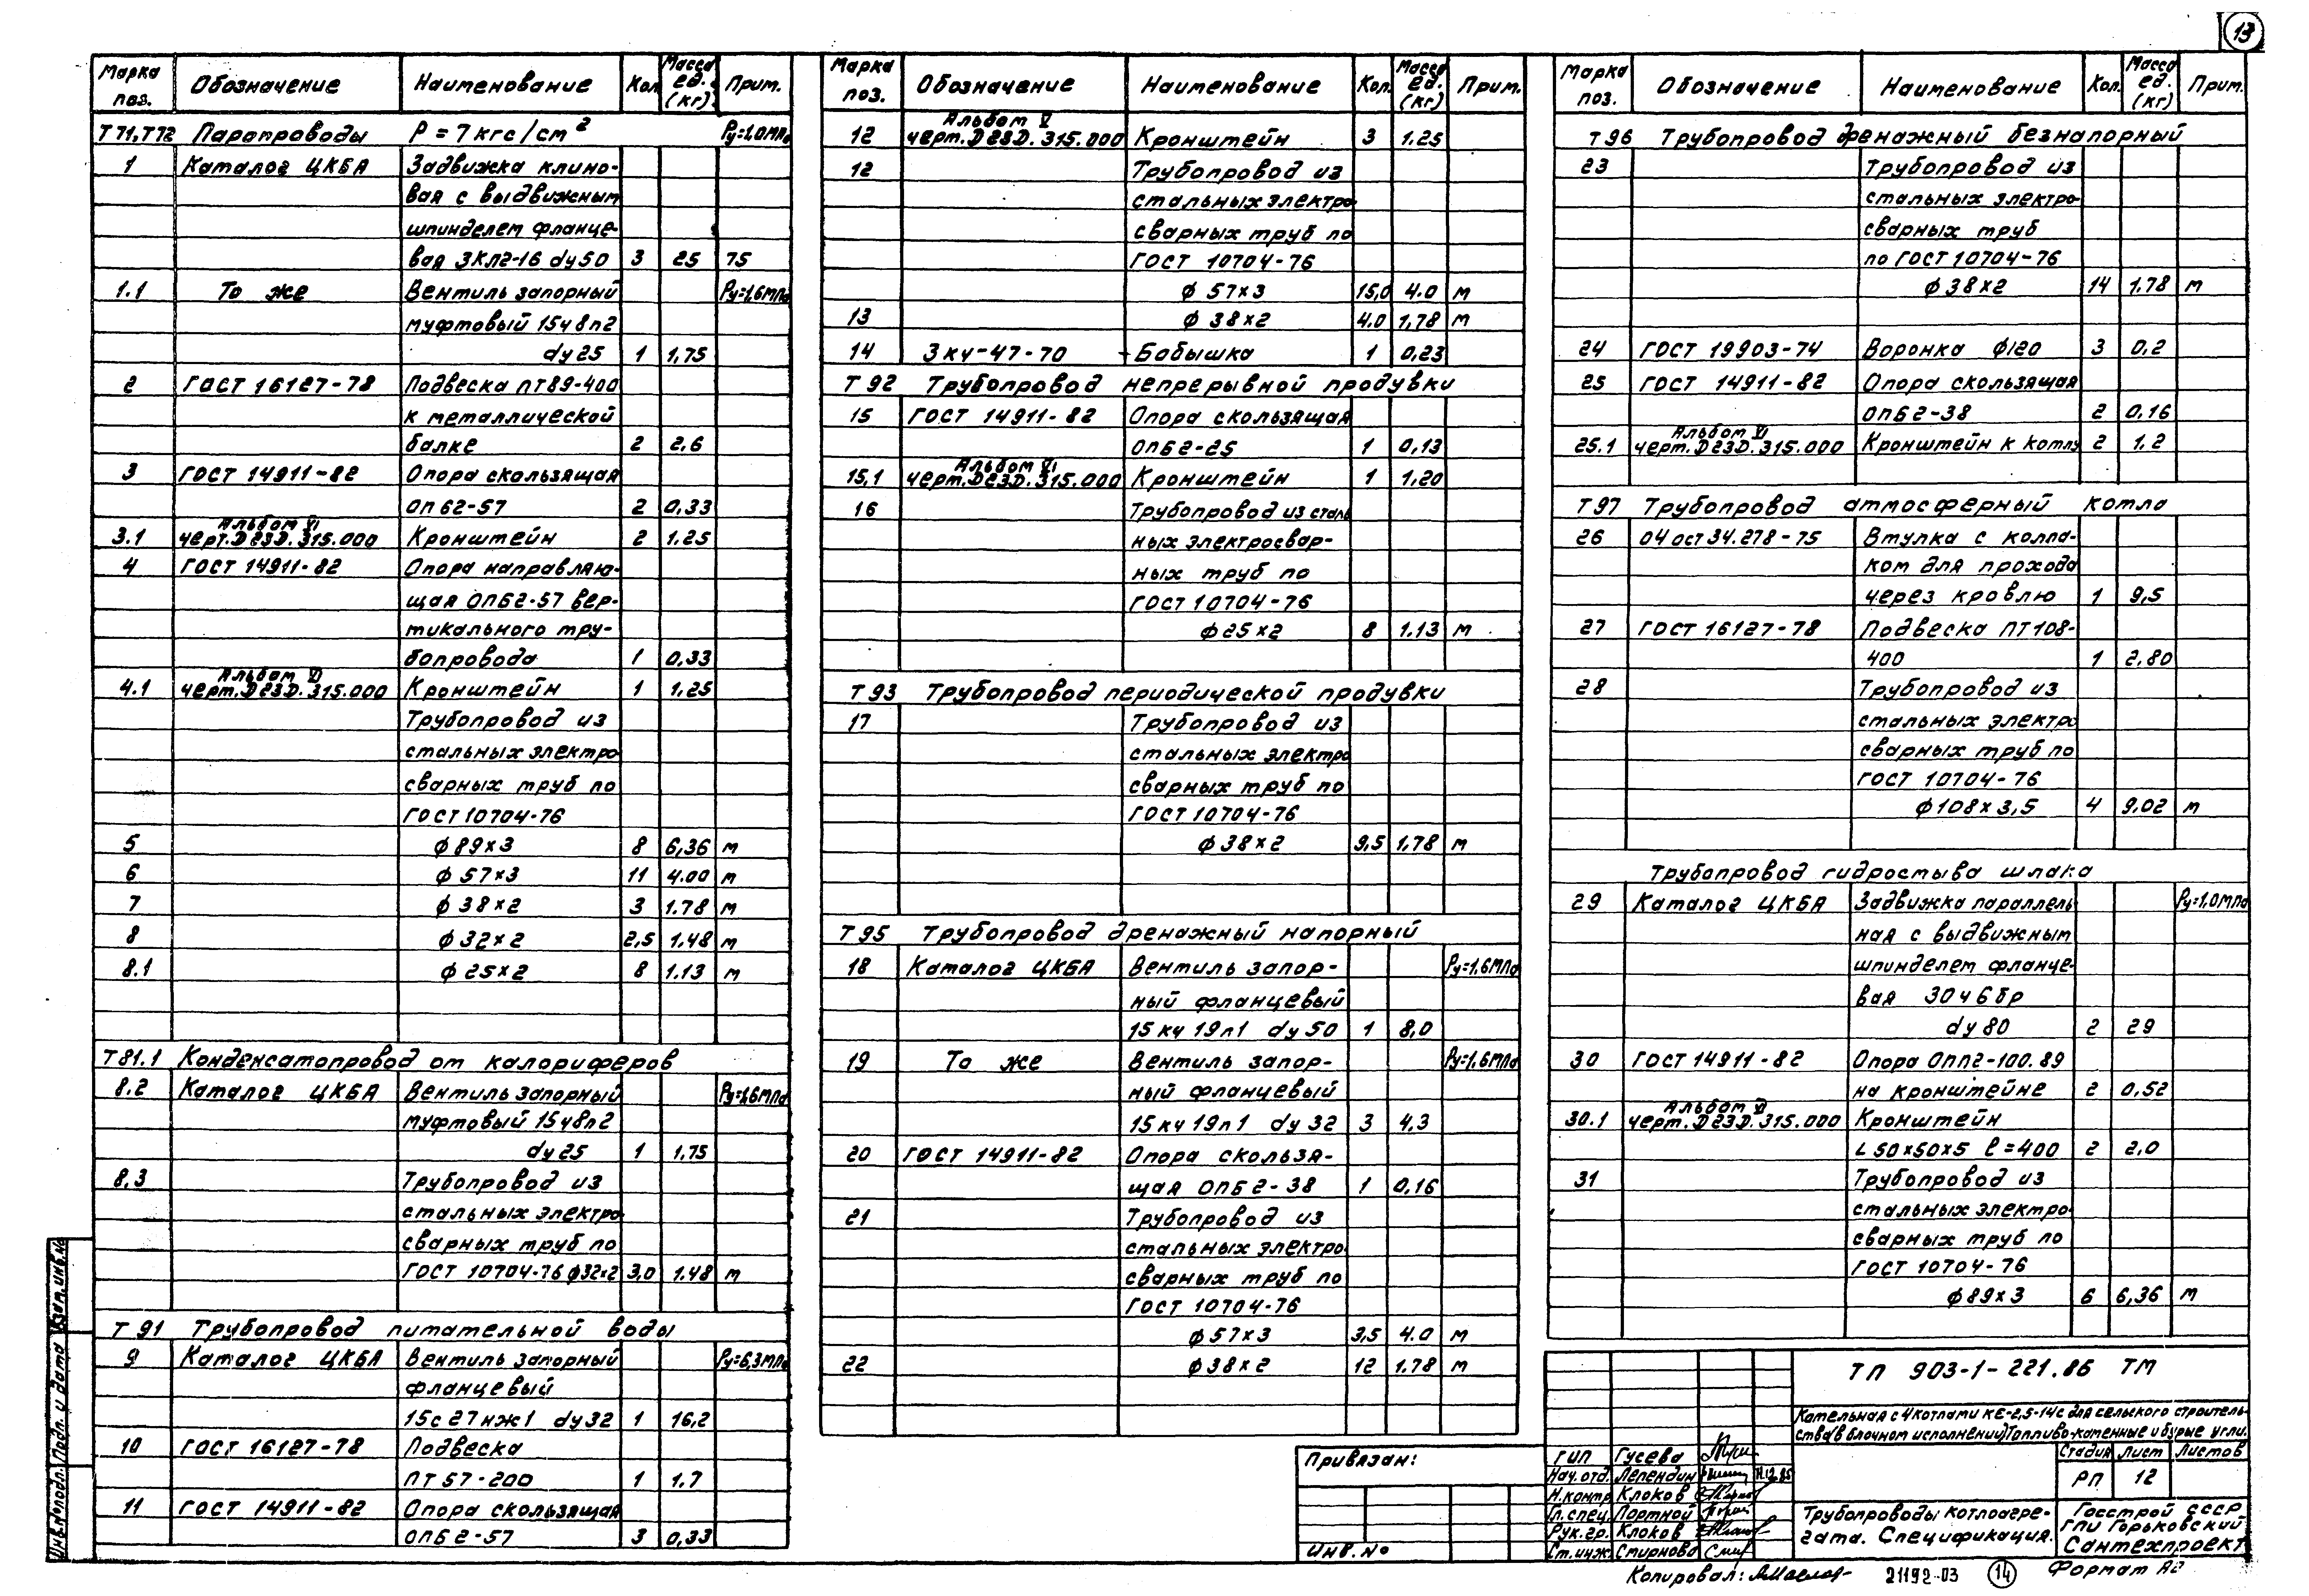 13
Марка поз. Обозначение Наименование Кол. Масса ед. (кг) Прим.
Т71, Т72 Паропроводы P = 7 кгс/см² Ру=1,0МПа
1 Каталог ЦКБА Задвижка клино-
вая с выдвижным
шпинделем фланце-
вая ЗКЛ2-16 dу50 3 25 75
1.1 То же Вентиль запорный Ру=1,6МПа
муфтовый 15ч8п2
dу25 1 1,75
2 ГОСТ 16127-78 Подвеска ПТ89-400
к металлической
балке 2 2,6
3 ГОСТ 14911-82 Опора скользящая
ОПБ2-57 2 0,33
Альбом VI
3.1 черт.D23D.315.000 Кронштейн 2 1.25
4 ГОСТ 14911-82 Опора направляю-
щая ОПБ2-57 вер-
тикального тру-
бопровода 1 0,33
Альбом VI
4.1 черт.D23D.315.000 Кронштейн 1 1,25
Трубопровод из
стальных электро
сварных труб по
ГОСТ 10704-76
5 ф 89×3 8 6,36 м
6 ф 57×3 11 4.00 м
7 ф 38×2 3 1.78 м
8 ф 32×2 2,5 1.48 м
8.1 ф 25×2 8 1.13 м
Т81.1 Конденсатопровод от калориферов
8.2 Каталог ЦКБА Вентиль запорный Ру=1,6МПа
муфтовый 15ч8п2
dу25 1 1,75
8.3 Трубопровод из
стальных электро
сварных труб по
ГОСТ 10704-76 ф32×2 3,0 1.48 м
Т 91 Трубопровод питательной воды
9 Каталог ЦКБА Вентиль запорный Ру=6,3МПа
фланцевый
15с27нж1 dу32 1 16,2
10 ГОСТ 16127-78 Подвеска
ПТ 57-200 1 1.7
11 ГОСТ 14911-82 Опора скользящая
ОПБ2-57 3 0,33
Марка поз. Обозначение Наименование Кол. Масса ед. (кг) Прим.
Альбом V
12 черт.D23D.315.000 Кронштейн 3 1.25
12 Трубопровод из
стальных электро
сварных труб по
ГОСТ 10704-76
ф 57×3 15,0 4.0 м
13 ф 38×2 4.0 1,78 м
14 ЗК4-47-70 Бобышка 1 0,23
Т 92 Трубопровод непрерывной продувки
15 ГОСТ 14911-82 Опора скользящая
ОПБ2-25 1 0,13
Альбом VI
15,1 черт.D23D.315.000 Кронштейн 1 1,20
16 Трубопровод из сталь
ных электросвар-
ных труб по
ГОСТ 10704-76
ф25×2 8 1.13 м
Т 93 Трубопровод периодической продувки
17 Трубопровод из
стальных электро
сварных труб по
ГОСТ 10704-76
ф 38×2 9,5 1,78 м
Т 95 Трубопровод дренажный напорный
18 Каталог ЦКБА Вентиль запор- Ру=1,6МПа
ный фланцевый
15кч19п1 dу50 1 8,0
19 То же Вентиль запор- Ру=1,6МПа
ный фланцевый
15кч19п1 dу32 3 4,3
20 ГОСТ 14911-82 Опора скользя-
щая ОПБ2-38 1 0,16
21 Трубопровод из
стальных электро-
сварных труб по
ГОСТ 10704-76
ф57×3 3,5 4.0 м
22 ф38×2 12 1.78 м
Марка поз. Обозначение Наименование Кол. Масса ед. (кг) Прим.
Т96 Трубопровод дренажный безнапорный
23 Трубопровод из
стальных электро-
сварных труб
по ГОСТ 10704-76
ф38×2 14 1,78 м
24 ГОСТ 19903-74 Воронка ф120 3 0.2
25 ГОСТ 14911-82 Опора скользящая
ОПБ2-38 2 0,16
Альбом VI
25.1 черт.D23D.315.000 Кронштейн к котлу 2 1.2
Т97 Трубопровод атмосферный котла
26 04 ост 34.278-75 Втулка с колпа-
ком для прохода
через кровлю 1 9,5
27 ГОСТ 16127-78 Подвеска ПТ108-
400 1 2,80
28 Трубопровод из
стальных электро
сварных труб по
ГОСТ 10704-76
ф108×3,5 4 9.02 м
Трубопровод гидросмыва шлака
29 Каталог ЦКБА Задвижка параллель Ру=1,0МПа
ная с выдвижным
шпинделем фланце-
вая 30ч6бр
dу 80 2 29
30 ГОСТ 14911-82 Опора ОПП2-100.89
на кронштейне 2 0,52
Альбом VI
30.1 черт.D23D.315.000 Кронштейн
L 50×50×5 ℓ=400 2 2,0
31 Трубопровод из
стальных электро-
сварных труб по
ГОСТ 10704-76
ф89×3 6 6,36 м
ТП 903-1-221.86 ТМ
Котельная с 4 котлами КЕ-2,5-14с для сельского строитель-
ства (в блочном исполнении) Топливо-каменные и бурые угли.
Стадия Лист Листов
РП 12
Трубопроводы котлоагре-
гата. Спецификация.
Госстрой СССР
ГПИ Горьковский
Сантехпроект
Привязан:
Инв.№
ГИП Гусева
Нач.отд. Лепендин
Н.контр Клоков
Гл.спец. Портной
Рук.гр. Клоков
Ст.инж. Смирнова
Инв.№подл. Подп. и дата Взам.инв.№
Копировал: 21192-03 14 Формат А2